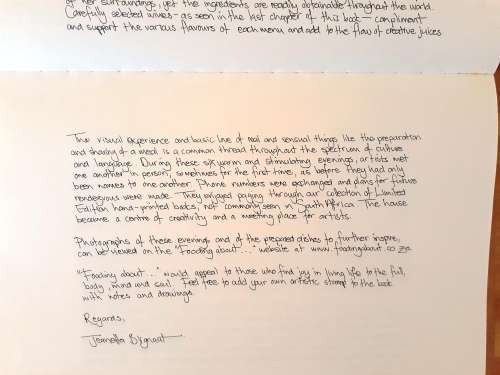 of her surroundings, yet the ingredients are readily obtainable throughout the world.
Carefully selected wines - as seen in the last chapter of this book - compliment
and support the various flavours of each menu and add to the flow of creative juices
The visual experience and basic love of real and sensual things like the preparation
and sharing of a meal is a common thread throughout the spectrum of culture
and language. During these six warm and stimulating evenings, artists met
one another in person, sometimes for the first time, as before they had only
been names to one another. Phone numbers were exchanged and plans for future
rendezvous were made. They enjoyed paging through our collection of Limited
Edition hand-printed books, not commonly seen in South Africa. The house
became a centre of creativity and a meeting place for artists.
Photographs of these evenings and of the prepared dishes to further inspire,
can be viewed on the "Fooding about..." website at www.foodingabout.co.za
"Fooding about..." would appeal to those who find joy in living life to the full,
body, mind and soul. Feel free to add your own artistic stamp to the book
with notes and drawings.
Regards,
Jeanetta